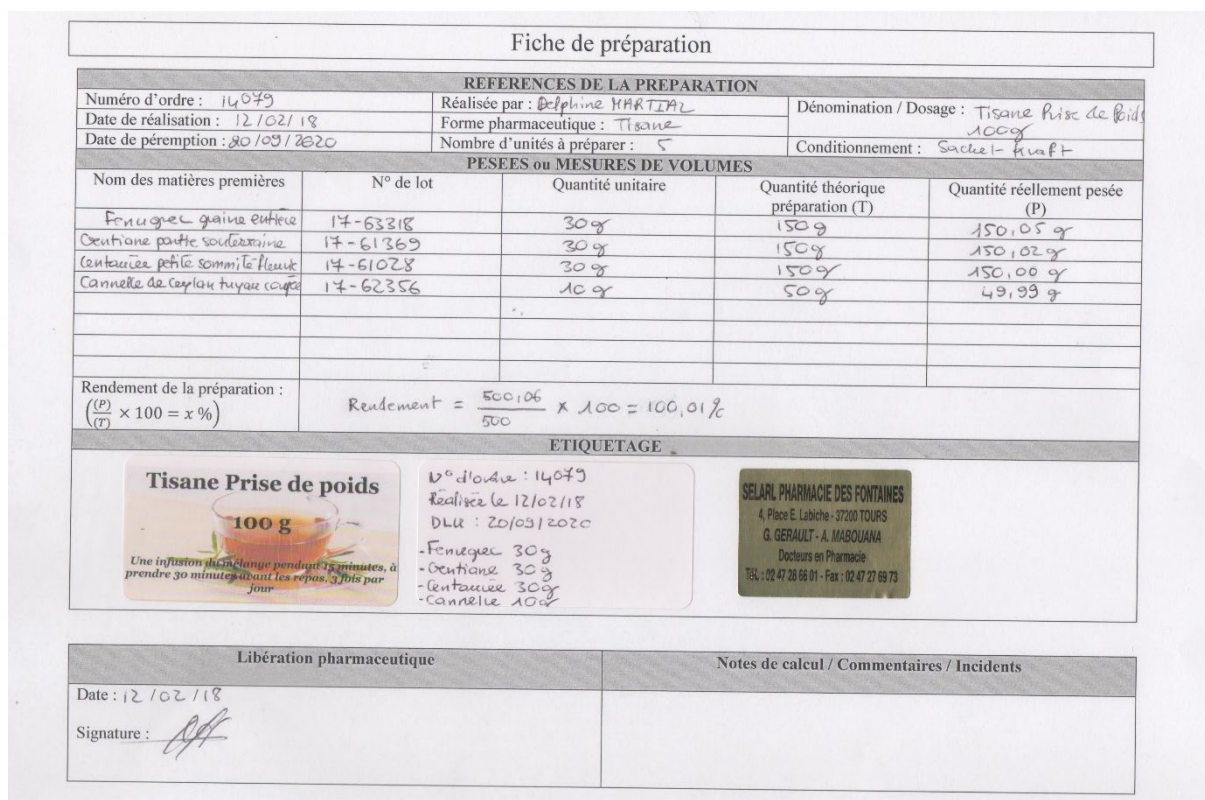 Fiche de préparation
REFERENCES DE LA PREPARATION
Numéro d'ordre : 14079
Réalisée par : Delphine MARTIAL
Dénomination / Dosage : Tisane Prise de Poids
100g
Date de réalisation : 12/02/18
Forme pharmaceutique : Tisane
Date de péremption : 20/09/2020
Nombre d'unités à préparer : 5
Conditionnement : Sachet kraft
PESEES ou MESURES DE VOLUMES
Nom des matières premières N° de lot Quantité unitaire Quantité théorique préparation (T) Quantité réellement pesée (P)
Fenugrec graine entière 17-63318 30g 150g 150,05 g
Gentiane partie souterraine 17-61369 30g 150g 150,02 g
Centaurée petite sommité fleurie 17-61028 30g 150g 150,00 g
Cannelle de Ceylan tuyau coupé 17-62356 10g 50g 49,99 g
Rendement de la préparation :
((P)/(T) × 100 = x %)
Rendement = 500,06/500 × 100 = 100,01%
ETIQUETAGE
Tisane Prise de poids
100 g
Une infusion du mélange pendant 15 minutes, à
prendre 30 minutes avant les repas, 3 fois par
jour
N° d'ordre : 14079
Réalisée le 12/02/18
DLU : 20/09/2020
- Fenugrec 30g
- Gentiane 30g
- Centaurée 30g
- Cannelle 10g
SELARL PHARMACIE DES FONTAINES
4, Place E. Labiche - 37200 TOURS
G. GERAULT - A. MABOUANA
Docteurs en Pharmacie
Tél. : 02 47 28 66 01 - Fax : 02 47 27 69 73
Libération pharmaceutique
Notes de calcul / Commentaires / Incidents
Date : 12/02/18
Signature :